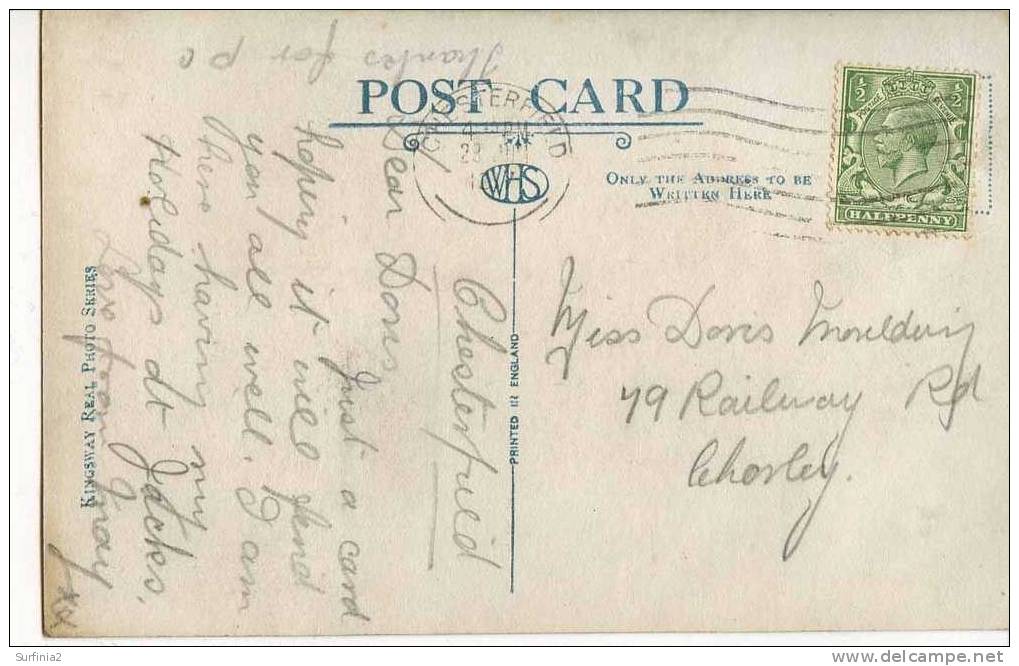 Thanks for p c
POST CARD
WHS
ONLY THE ADDRESS TO BE
WRITTEN HERE
1/2 1/2
HALFPENNY
Chesterfield
Dear Doris
Just a card
hoping it will find
you all well. I am
here having my
Holedays at
Love from
KINGSWAY REAL PHOTO SERIES
PRINTED IN ENGLAND
Miss Doris Moulding
79 Railway Rd
Chorley.
Surfinia2
www.delcampe.net